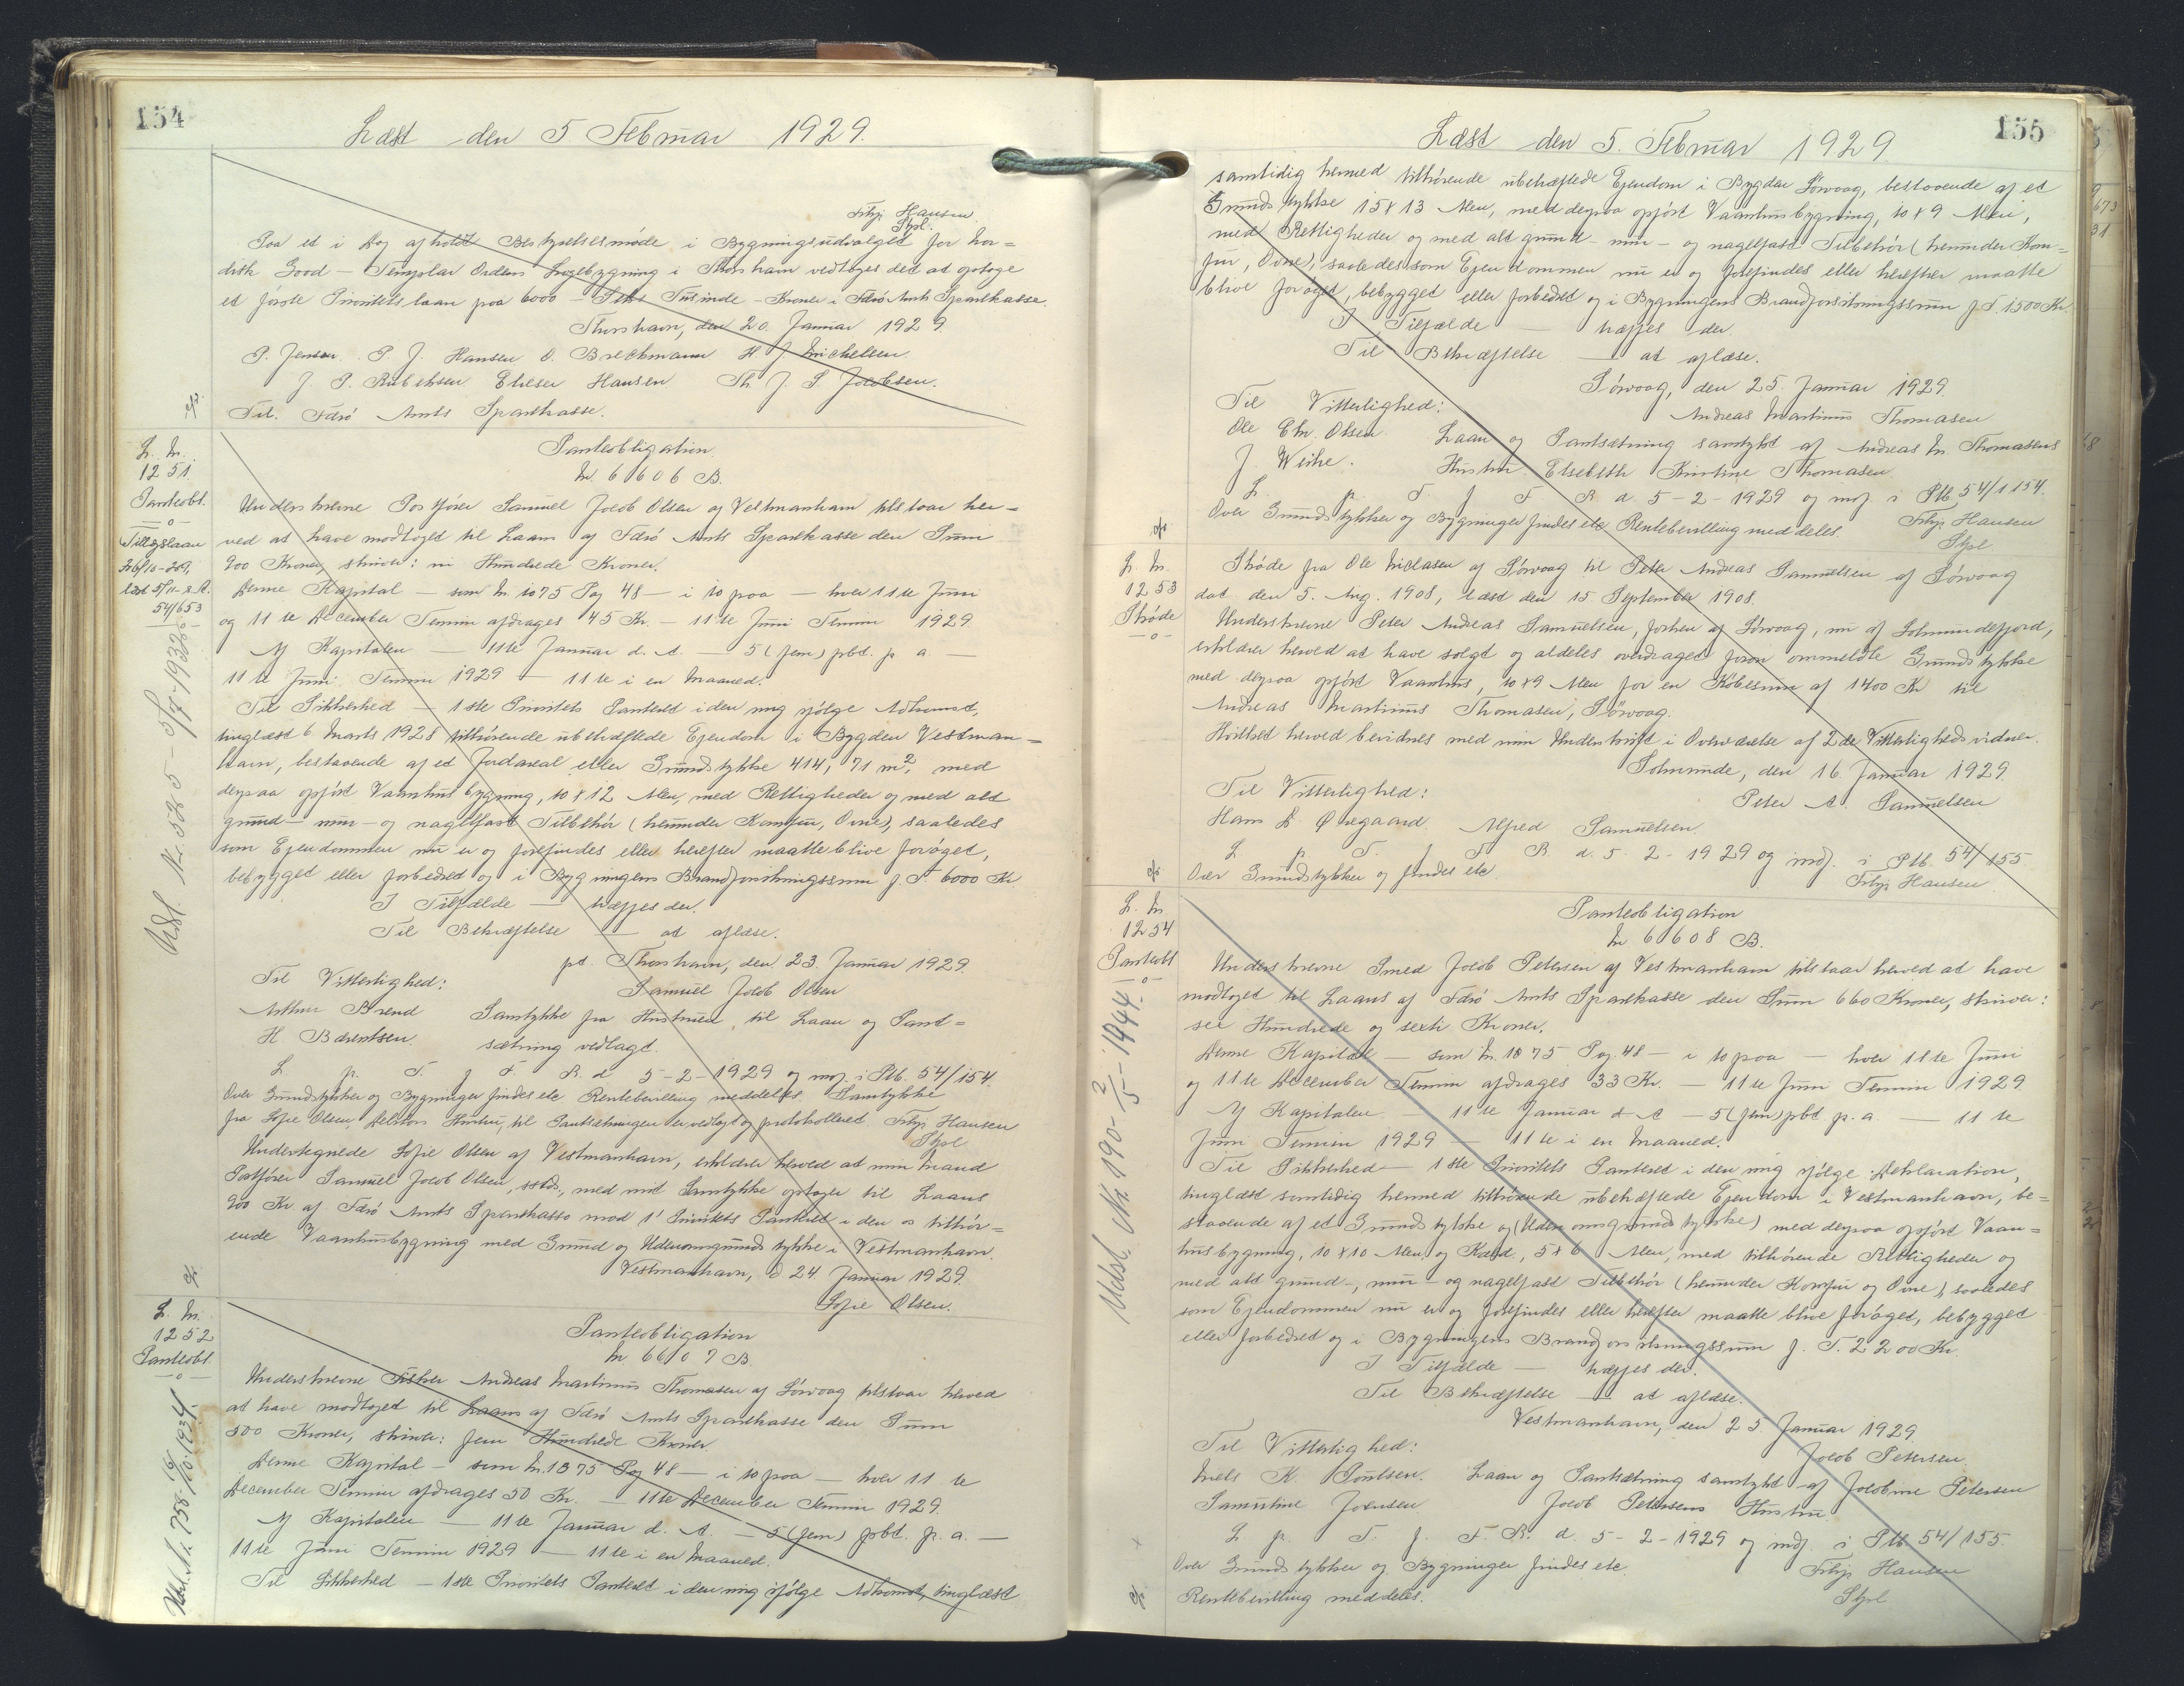 154
Læst den 5 Februar 1929.
Filip Hansen
Stpl.
Paa et i Dag afholdt Bestyrelsesmøde i Bygningsudvalget for Nor=
disk Good-Templar Ordens Logebygning i Thorshavn vedtoges det at optage
et første Prioritetslaan paa 6000 - Seks Tusinde - Kroner i Færø Amts Sparekasse.
Thorshavn, den 20. Januar 1929.
P. Jensen. P. J. Hansen O. Breckmann H. J. Michelsen.
J. P. Rubeksen Elieser Hansen Th. J. S. Jacobsen.
Til. Færø Amts Sparekasse.
L. Nr.
1251.
Panteobl.
—o—
Tillægslaan
læst 5/11-28.
54/653
Udsl. Nr. 525 - 5/7-1938
Panteobligation
Nr. 6606 B.
Underskrevne Postfører Samuel Jacob Olsen af Vestmanhavn tilstaar her=
ved at have modtaget til Laans af Færø Amts Sparekasse den Sum
900 Kroner, skriver: ni Hundrede Kroner.
Denne Kapital — som Nr. 1075 Pag 48 — i 10 paa — hver 11te Juni
og 11te December Termin afdrages 45 Kr. — 11te Juni Termin 1929
Af Kapitalen — 11te Januar d. A. — 5 (fem) pCt. p. a. —
11te Juni Termin 1929 — 11te i en Maaned.
Til Sikkerhed — 1ste Prioritets Panteret i den mig ifølge Adkomst,
tinglæst 6 Marts 1928 tilhørende ubehæftede Ejendom i Bygden Vestman=
havn, bestaaende af et Jordareal eller Grundstykke 414,71 m², med
derpaa opført Vaanhusbygning, 10 x 12 Alen, med Rettigheder og med alt
grund- mur- og nagelfast Tilbehør (herunder Komfur, Ovne), saaledes
som Ejendommen nu er og forefindes eller herefter maatte blive forøget,
bebygget eller forbedret og i Bygningens Brandforsikringssum f. T. 6000 Kr.
I Tilfælde — træffes der.
Til Bekræftelse — at aflæse.
pt. Thorshavn, den 23. Januar 1929.
Til Vitterlighed: Samuel Jacob Olsen
Arthur Brend Samtykke fra Hustruen, til Laan og Pant=
H. Bærentsen. sætning vedlagt.
L. p. T. f. F. R. d. 5-2-1929 og indf. i Ptb. 54/154.
Over Grundstykker og Bygninger findes etc. Rentebevilling meddeles. Samtykke
fra Sofie Olsen, Debitors Hustru, til Pantsætningen er vedlagt og protokolleret. Filip Hansen
Stpl
Undertegnede Sofie Olsen af Vestmanhavn, erklærer herved at min Mand
Postfører Samuel Jacob Olsen, sstds., med mit Samtykke optager til Laans
900 Kr. af Færø Amts Sparekasse mod 1' Prioritets Panteret i den os tilhør=
ende Vaanhusbygning med Grund og Udenomsgrundstykke i Vestmanhavn.
Vestmanhavn, d 24. Januar 1929.
Sofie Olsen.
L. Nr.
1252
Panteobl.
—o—
Udsl. Nr. 758. 16/10.1934.
Panteobligation
Nr. 6607 B.
Underskrevne Fisker Andreas Martinus Thomasen af Sørvaag tilstaar herved
at have modtaget til Laans af Færø Amts Sparekasse den Sum
500 Kroner, skriver: fem Hundrede Kroner.
Denne Kapital — som Nr. 1075 Pag 48 — i 10 paa — hver 11te
December Termin afdrages 50 Kr. — 11te December Termin 1929.
Af Kapitalen — 11te Januar d. A. — 5 (fem) pCt. p. a. —
11te Juni Termin 1929 — 11te i en Maaned.
Til Sikkerhed — 1ste Prioritets Panteret i den mig ifølge Adkomst, tinglæst
155
Læst den 5. Februar 1929
samtidig hermed tilhørende ubehæftede Ejendom i Bygden Sørvaag, bestaaende af et
Grundstykke 15 x 13 Alen, med derpaa opført Vaanhusbygning, 10 x 9 Alen,
med Rettigheder og med alt grund- mur- og nagelfast Tilbehør (herunder Kom=
fur, Ovne), saaledes som Ejendommen nu er og forefindes eller herefter maatte
blive forøget, bebygget eller forbedret og i Bygningens Brandforsikringssum f. T. 1500 Kr.
I Tilfælde — træffes der.
Til Bekræftelse — at aflæse.
Sørvaag, den 25. Januar 1929.
Til Vitterlighed: Andreas Martinus Thomasen
Ole Chr. Olsen. Laan og Pantsætning samtykt af Andreas M. Thomasens
J. Weihe. Hustru Elsebeth Kirstine Thomasen.
L. p. T. f. F. R. d. 5-2-1929 og indf. i Ptb. 54/154.
Over Grundstykker og Bygninger findes etc. Rentebevilling meddeles. Filip Hansen
Stpl
L. Nr.
1253
Skøde
—o—
Skøde fra Ole Niclasen af Sørvaag til Peter Andreas Samuelsen af Sørvaag
dat. den 5. Aug. 1908, læst den 15 September 1908.
Underskrevne Peter Andreas Samuelsen, forhen af Sørvaag, nu af Solmundefjord,
erklærer herved at have solgt og aldeles overdraget foran ommeldte Grundstykke
med derpaa opført Vaanhus, 10 x 9 Alen for en Købesum af 1400 Kr. til
Andreas Martinus Thomasen, Sørvaag.
Hvilket herved bevidnes med min Underskrift i Overværelse af 2de Vitterlighedsvidner.
Solmunde, den 16. Januar 1929.
Til Vitterlighed: Peter A. Samuelsen
Hans D. Øregaard. Alfred Samuelsen.
L. p. T. f. F. R. d. 5.-2-1929 og indf. i Ptb. 54/155
Over Grundstykker og findes etc. Filip Hansen.
L. Nr.
1254
Panteobl
—o—
Udsl. Nr. 190- 2/5-1944.
Panteobligation
Nr. 6608 B.
Underskrevne Smed Jacob Petersen af Vestmanhavn tilstaar herved at have
modtaget til Laans af Færø Amts Sparekasse den Sum 660 Kroner, skriver:
sex Hundrede og sexti Kroner.
Denne Kapital — som Nr. 1075 Pag. 48 — i 10 paa — hver 11te Juni
og 11te December Termin afdrages 33 Kr. — 11te Juni Termin 1929
Af Kapitalen — 11te Januar d. A. — 5 (fem) pCt p. a. — 11te
Juni Termin 1929 — 11te i en Maaned.
Til Sikkerhed — 1ste Prioritets Panteret i den mig ifølge Deklaration,
tinglæst samtidig hermed tilhørende ubehæftede Ejendom i Vestmanhavn, be=
staaende af et Grundstykke og (Udenomsgrundstykke) med derpaa opført Vaan=
husbygning, 10 x 10 Alen og Kæld., 5 x 6 Alen, med tilhørende Rettigheder og
med alt grund-, mur- og nagelfast Tilbehør (herunder Komfur og Ovne), saaledes
som Ejendommen nu er og forefindes eller herefter maatte blive forøget, bebygget
eller forbedret og i Bygningens Brandforsikringssum f. T. 2200 Kr.
I Tilfælde — træffes der.
Til Bekræftelse — at aflæse.
Vestmanhavn, den 25. Januar 1929.
Til Vitterlighed: Jacob Petersen.
Niels K. Poulsen. Laan og Pantsætning samtykt af Jacobine Petersen
Samuline Joensen Jacob Petersens Hustru.
L. p. T. f. F. R. d. 5-2-1929 og indf. i Ptb. 54/155.
Over Grundstykker og Bygninger findes etc. Filip Hansen
Rentebevilling meddeles. Stpl